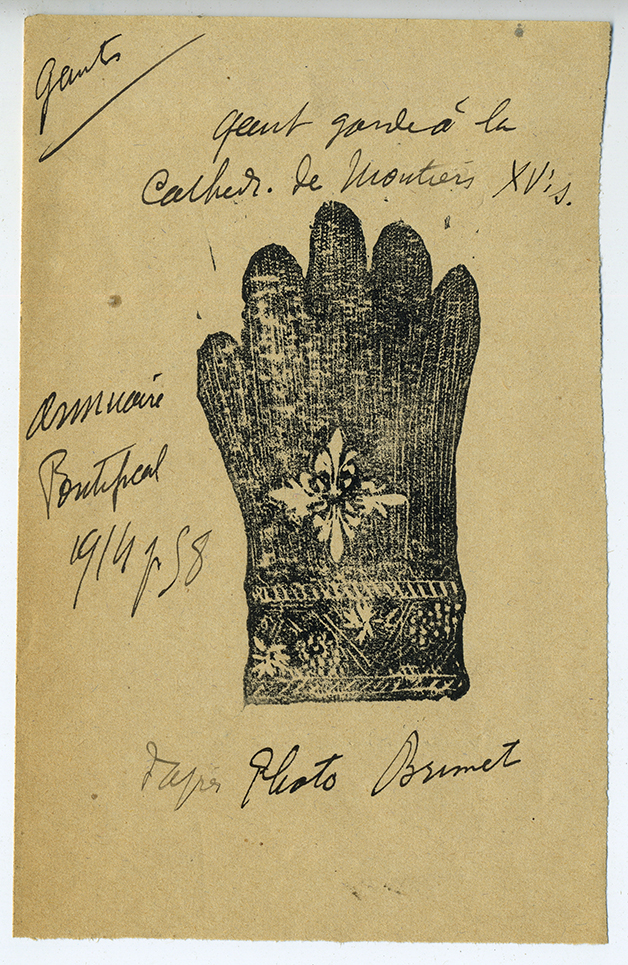 gants
gant gardé à la
Cathedr. de Moutiers XVe s.
Annuaire
Pontifical
1914 p 58
d'après Photo Brunet